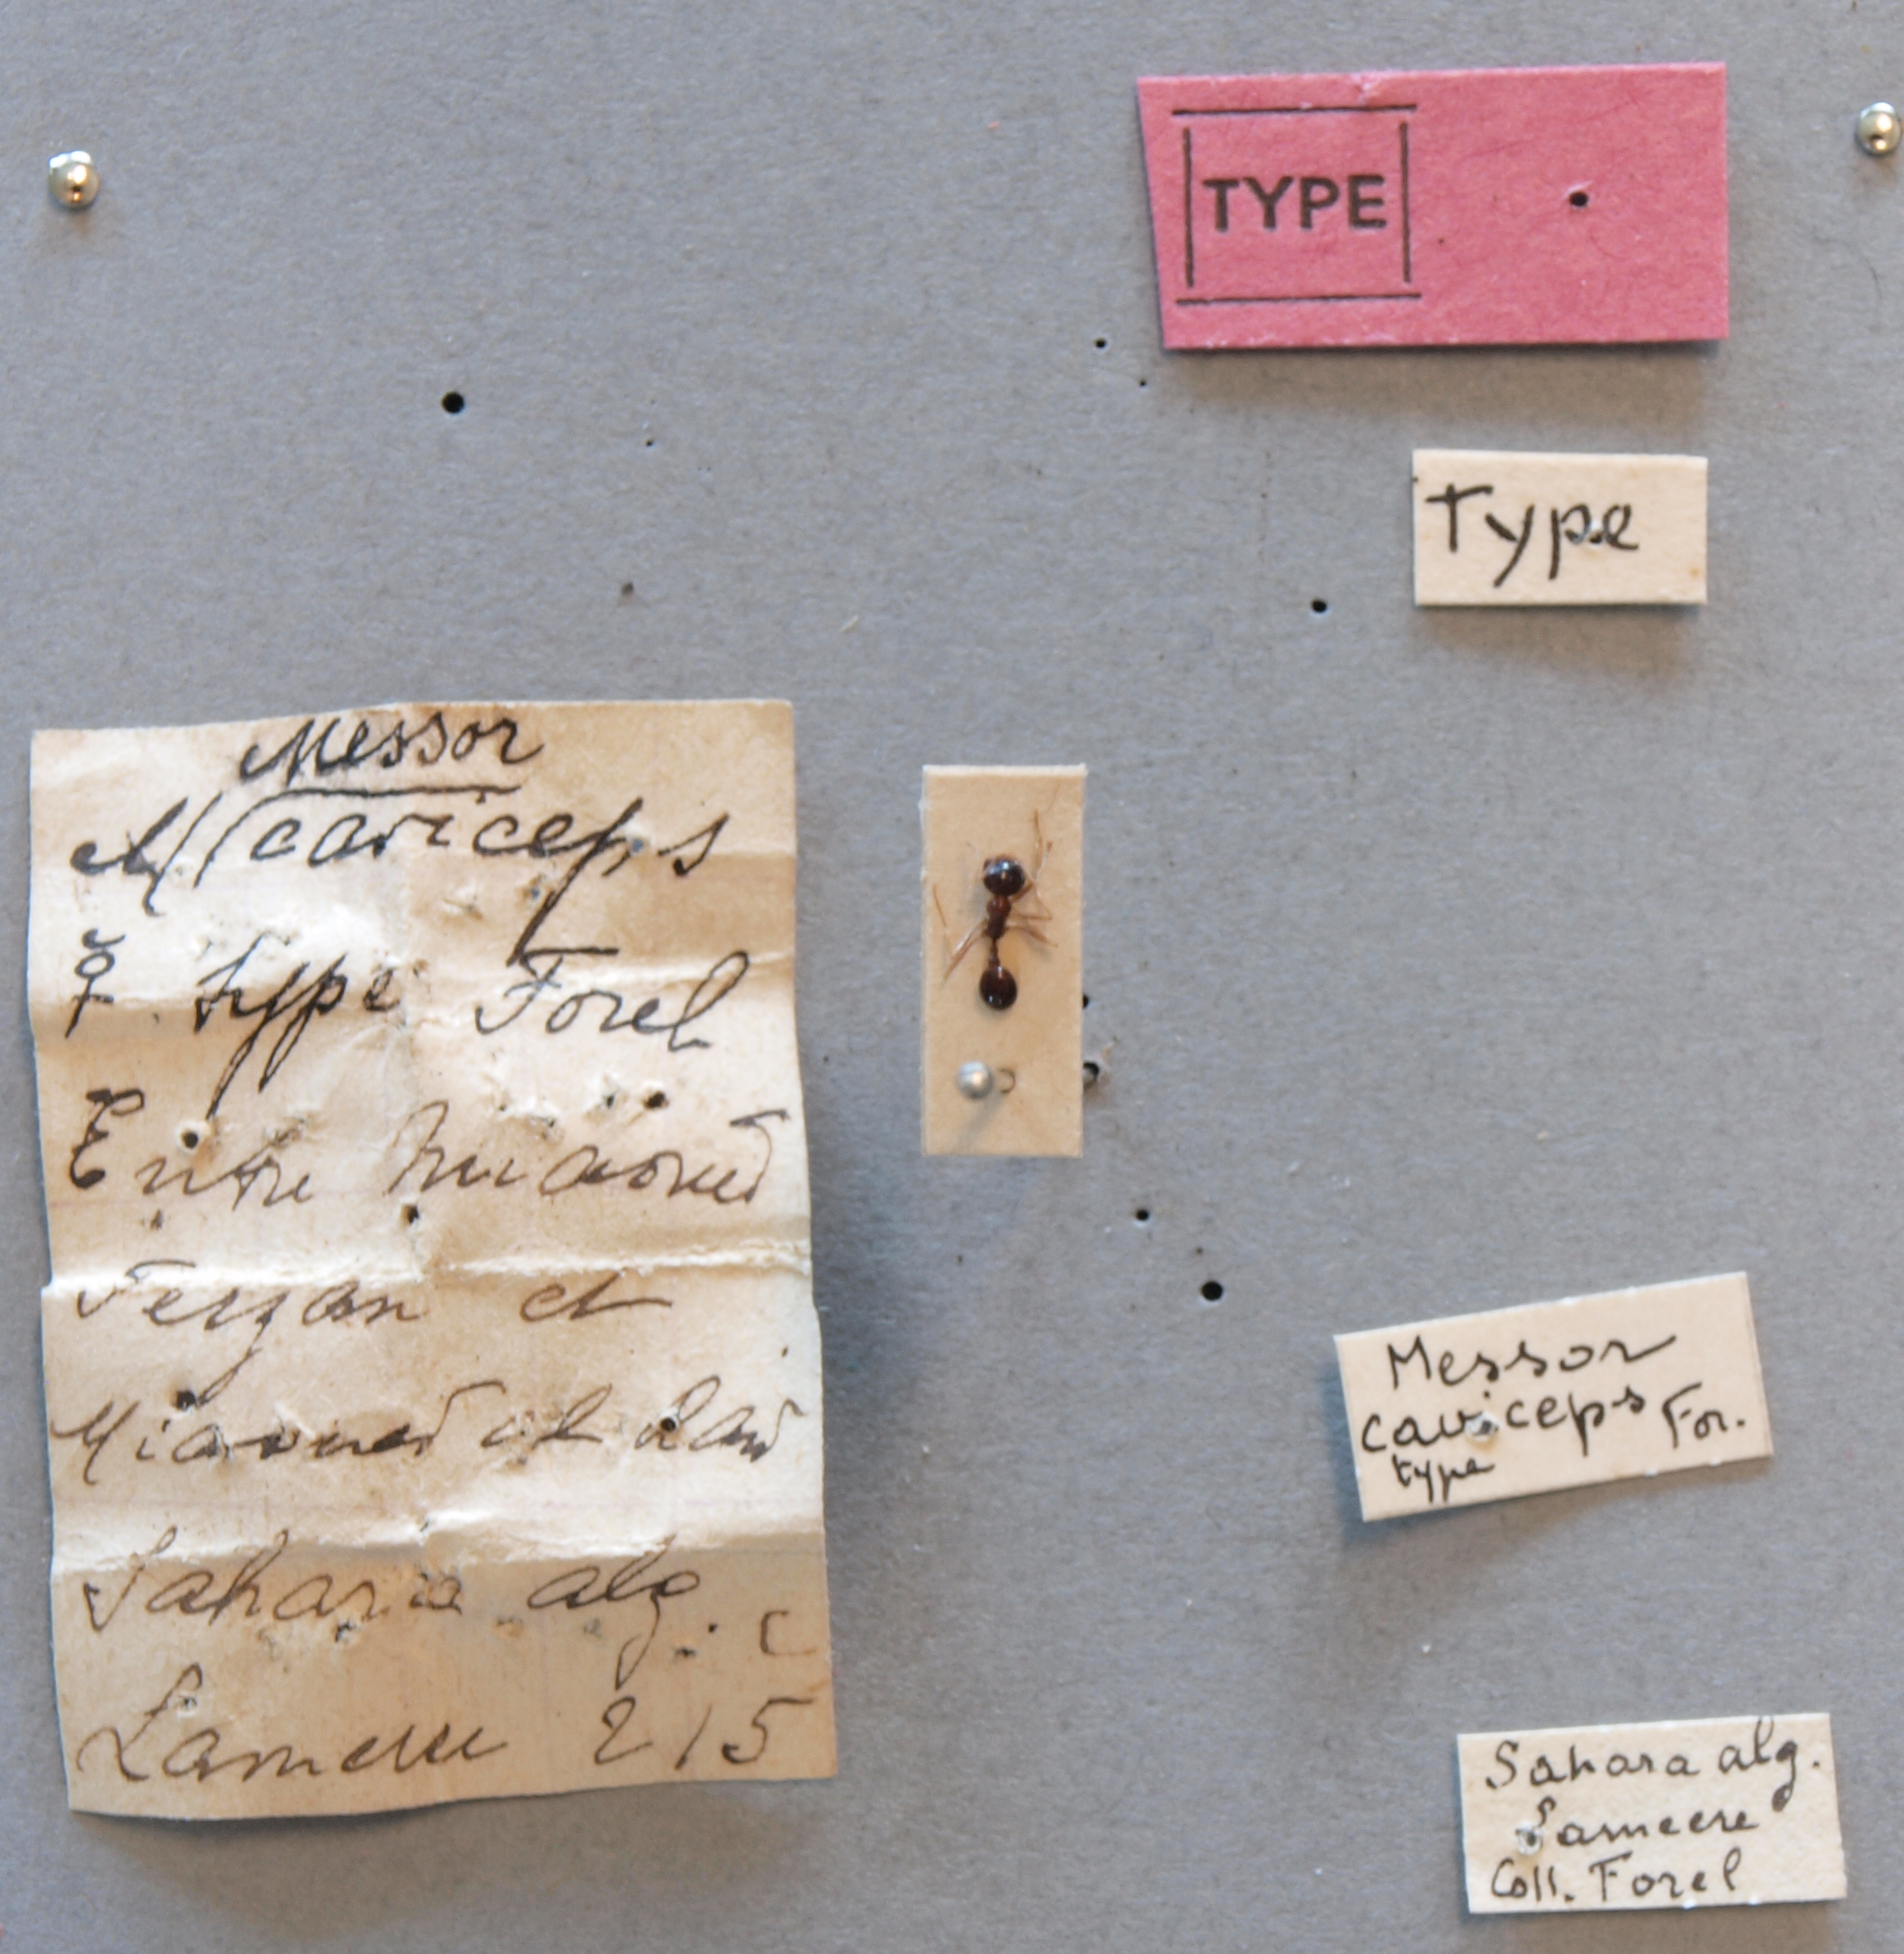 TYPE
Type
Messor
M. caviceps
☿. type Forel
Entre
et
Sahara alg. C
Lameere 215
Messor
caviceps For.
type
Sahara alg.
Lameere
Coll. Forel